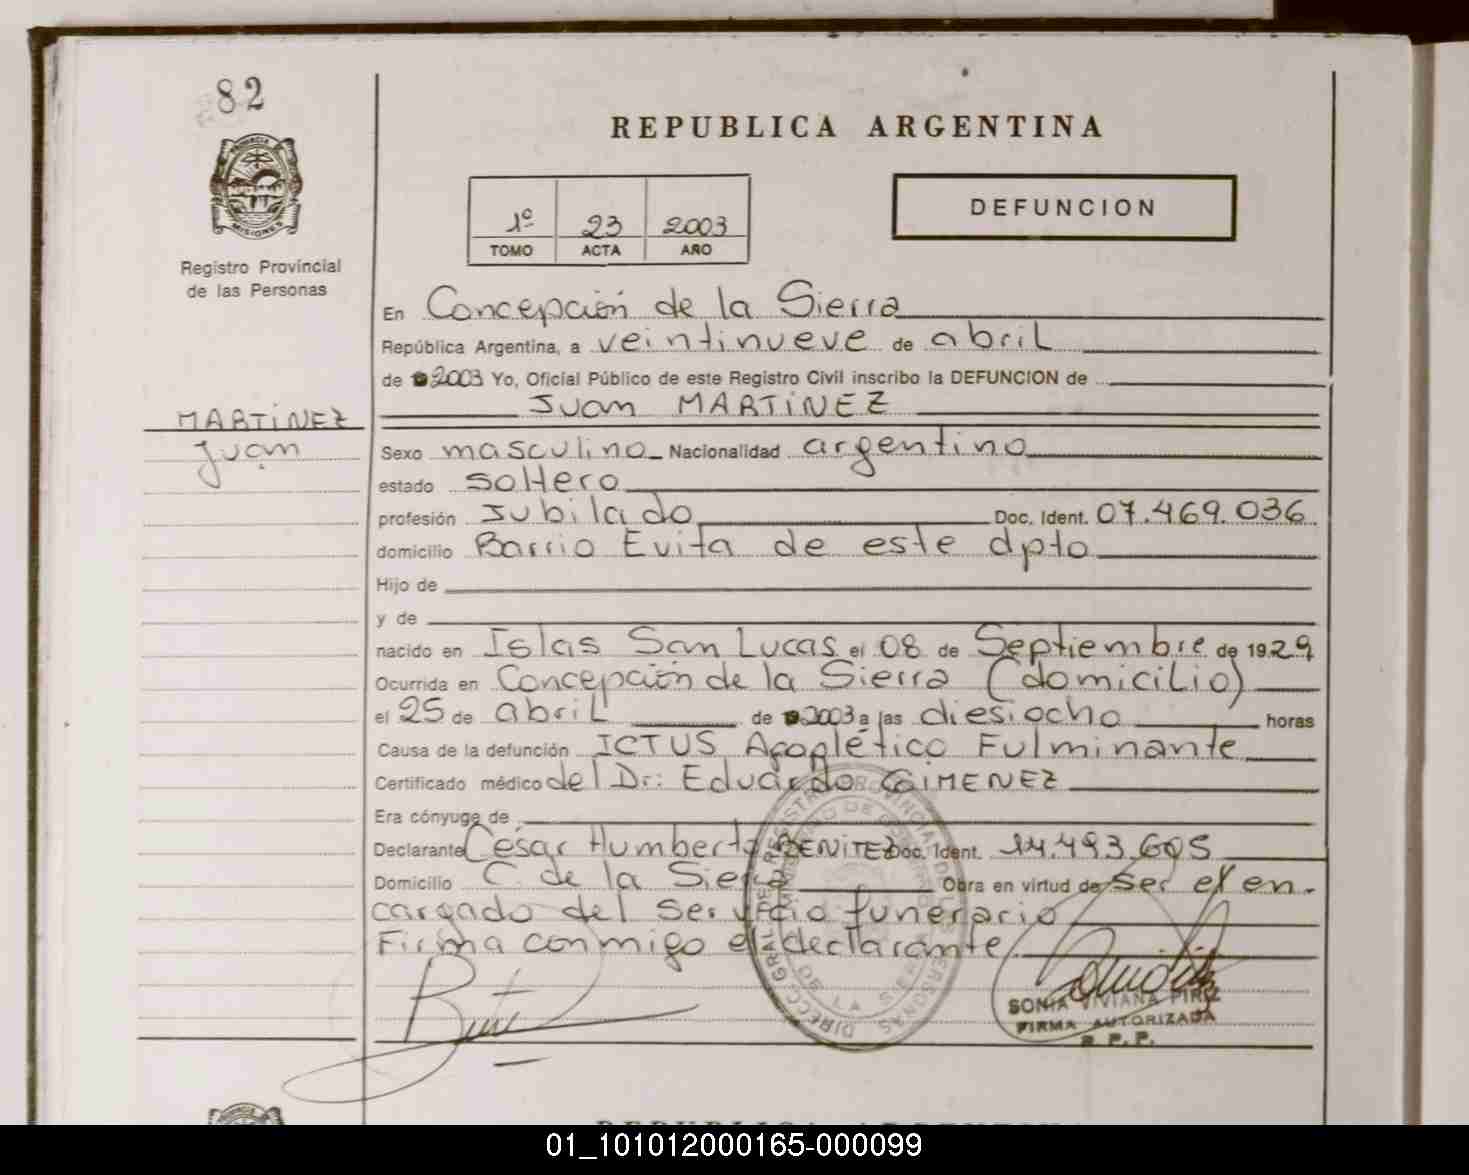 82
REPUBLICA ARGENTINA
PROVINCIA DE MISIONES
1º 23 2003
TOMO ACTA AÑO
DEFUNCION
Registro Provincial
de las Personas
En Concepción de la Sierra
República Argentina, a veintinueve de abril
de 2003 Yo, Oficial Público de este Registro Civil inscribo la DEFUNCION de
Juan MARTINEZ
MARTINEZ
Juan
Sexo masculino Nacionalidad argentino
estado soltero
profesión Jubilado Doc. Ident. 07.469.036
domicilio Barrio Evita de este dpto
Hijo de
y de
nacido en Islas San Lucas el 08 de Septiembre de 1929
Ocurrida en Concepción de la Sierra (domicilio)
el 25 de abril de 2003 a las diesiocho horas
Causa de la defunción ICTUS Apoplético Fulminante
Certificado médico del Dr: Eduardo GIMENEZ
Era cónyuge de
Declarante César Humberto BENITEZ Doc. Ident. 14.493.605
Domicilio C. de la Sierra Obra en virtud de ser el en-
cargado del servicio funerario
Firma conmigo el declarante
SONIA VIVIANA PIRIZ
FIRMA AUTORIZADA
R. P. P.
REPUBLICA ARGENTINA
01_101012000165-000099